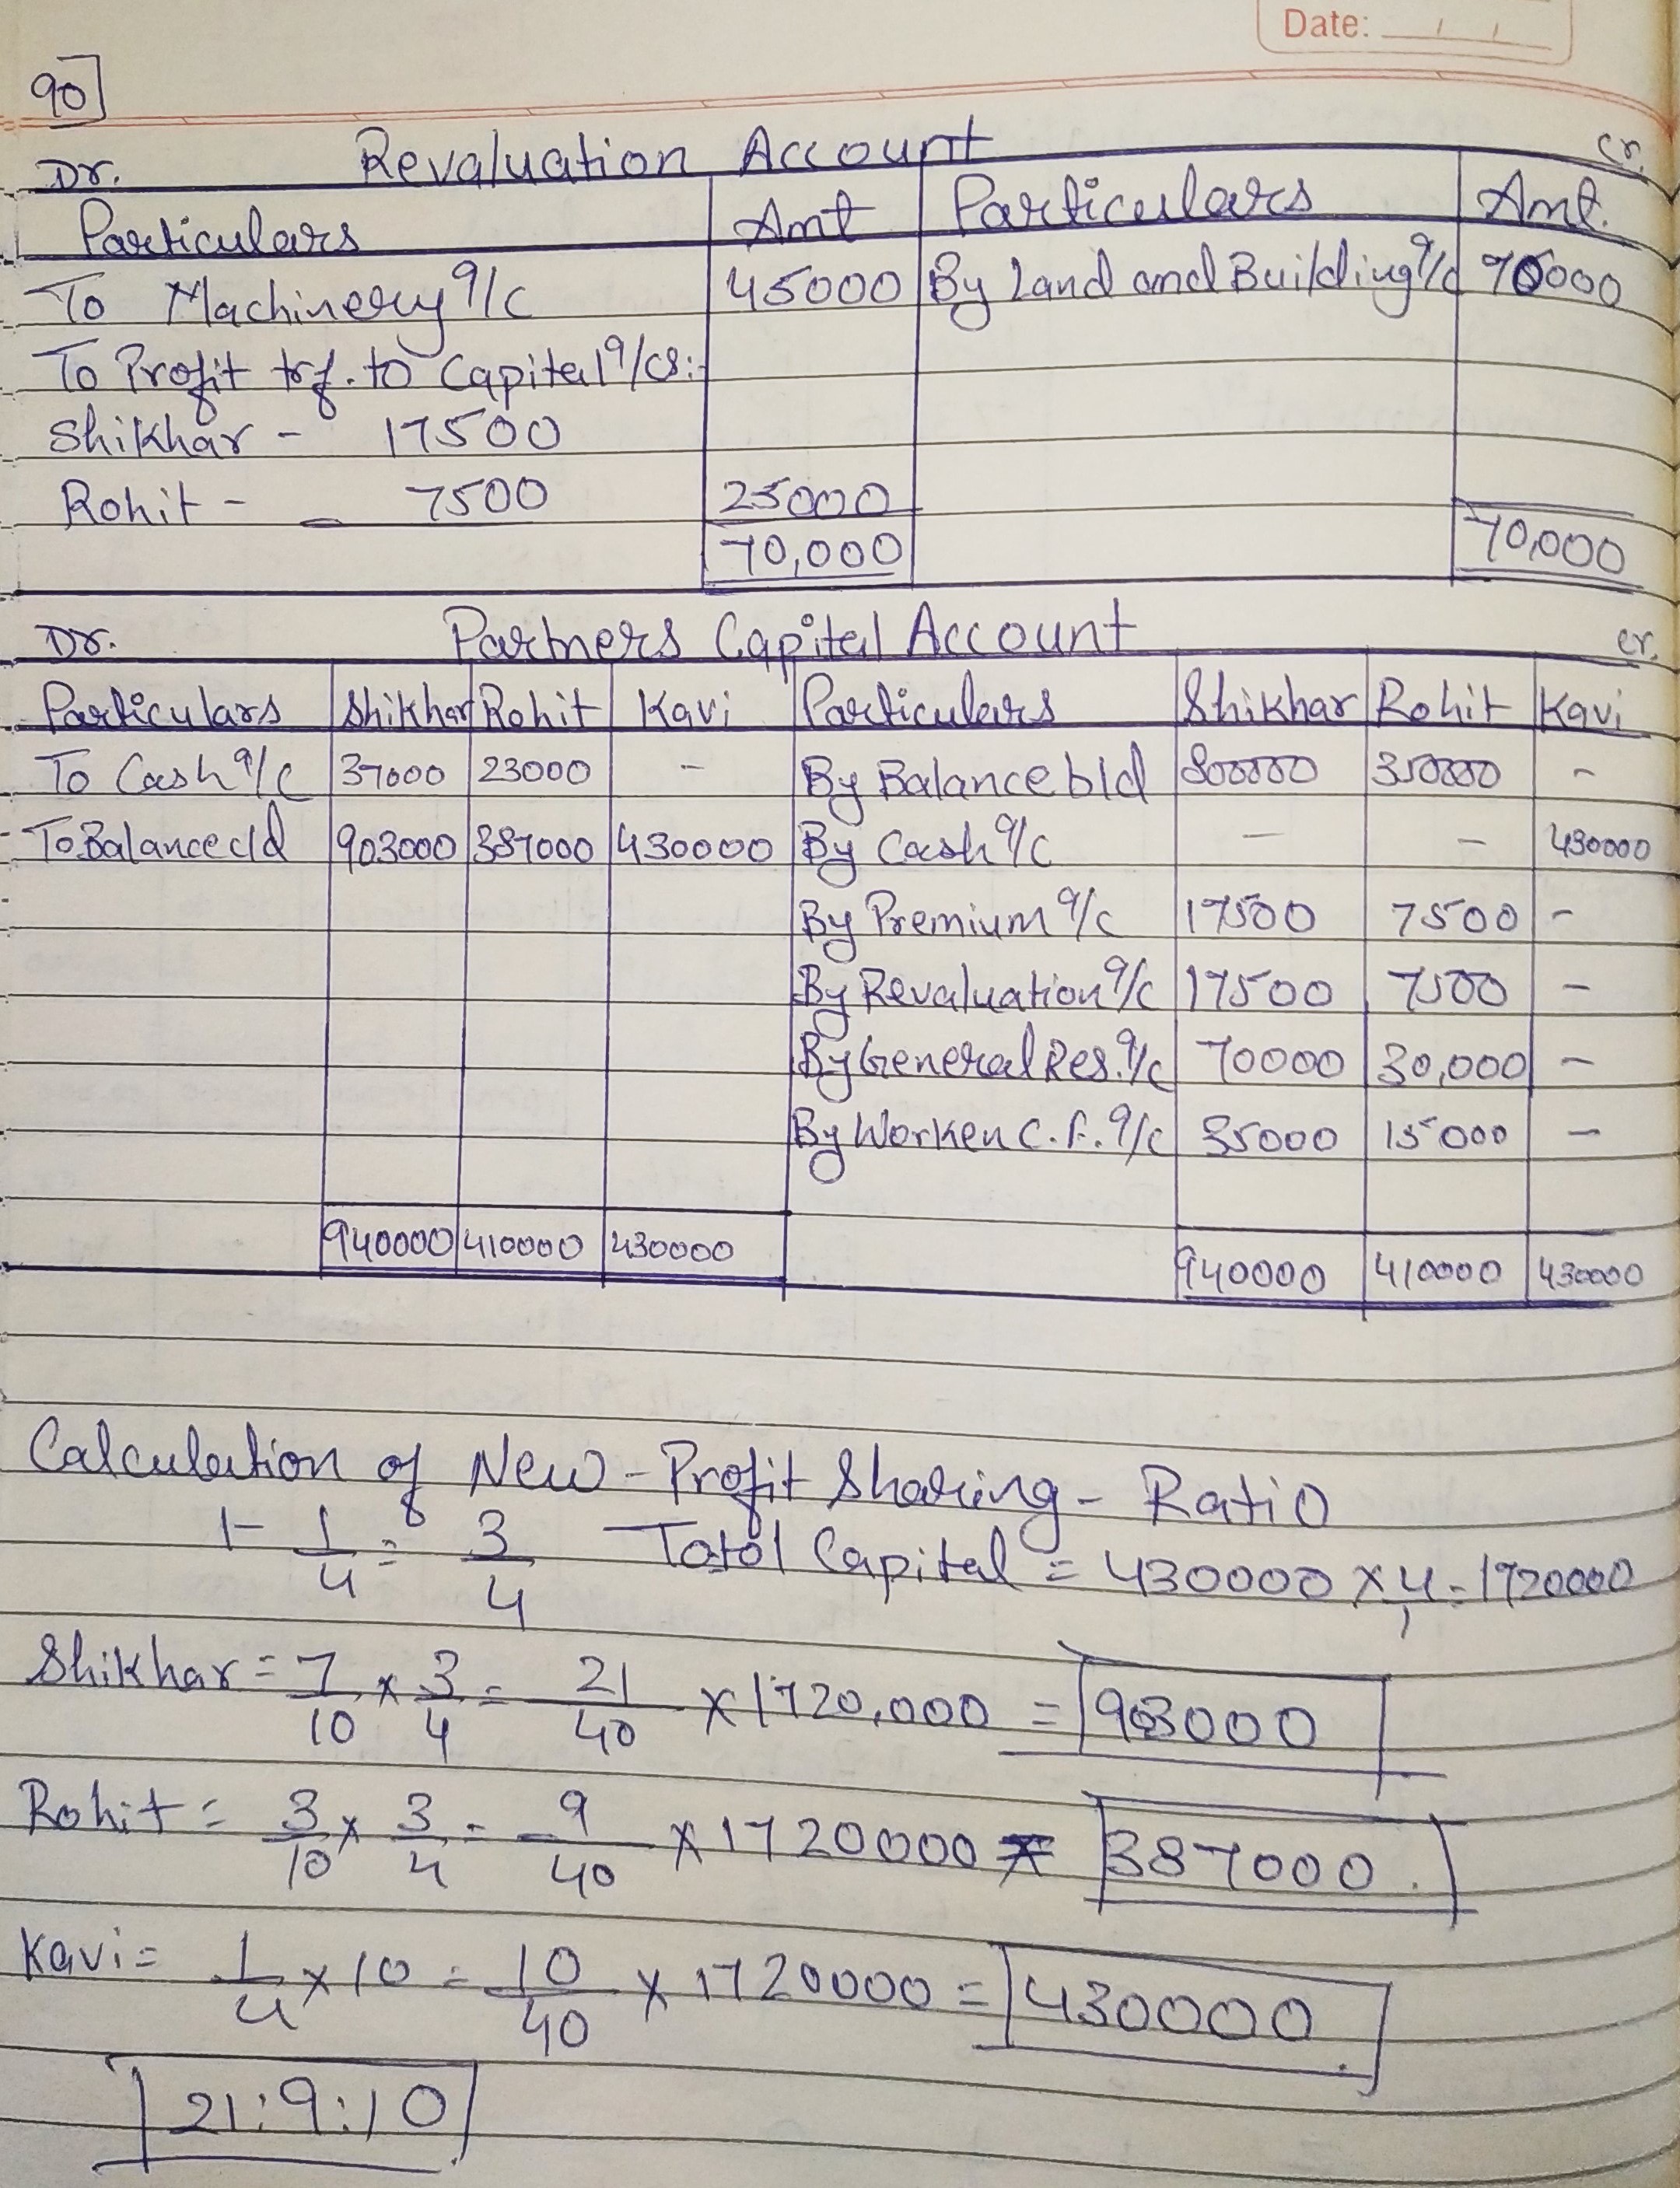 Date: / /
90]
Dr. Revaluation Account Cr.
Particulars Amt Particulars Amt.
To Machinery a/c 45000 By Land and Building a/c 70000
To Profit trf. to Capital a/cs:-
Shikhar - 17500
Rohit - 7500 25000
70,000 70,000
Dr. Partners Capital Account Cr.
Particulars Shikhar Rohit Kavi Particulars Shikhar Rohit Kavi
To Cash a/c 37000 23000 - By Balance b/d 800000 350000 -
To Balance c/d 903000 387000 430000 By Cash a/c - - 430000
By Premium a/c 17500 7500 -
By Revaluation a/c 17500 7500 -
By General Res. a/c 70000 30,000 -
By Worken C.F. a/c 35000 15000 -
940000 410000 430000 940000 410000 430000
Calculation of New-Profit Sharing-Ratio
1 - 1/4 = 3/4 Total Capital = 430000 x 4/1 = 1720000
Shikhar = 7/10 x 3/4 = 21/40 x 1720,000 = 903000
Rohit = 3/10 x 3/4 = 9/40 x 1720000 = 387000
Kavi = 1/4 x 10 = 10/40 x 1720000 = 430000
21:9:10